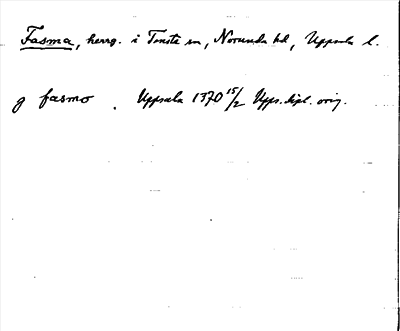 Fasma, herrg. i Tensta sn, Norunda hd, Uppsala l.
g fasmo . Uppsala 1370 15/2 Upps. dipl. orig.